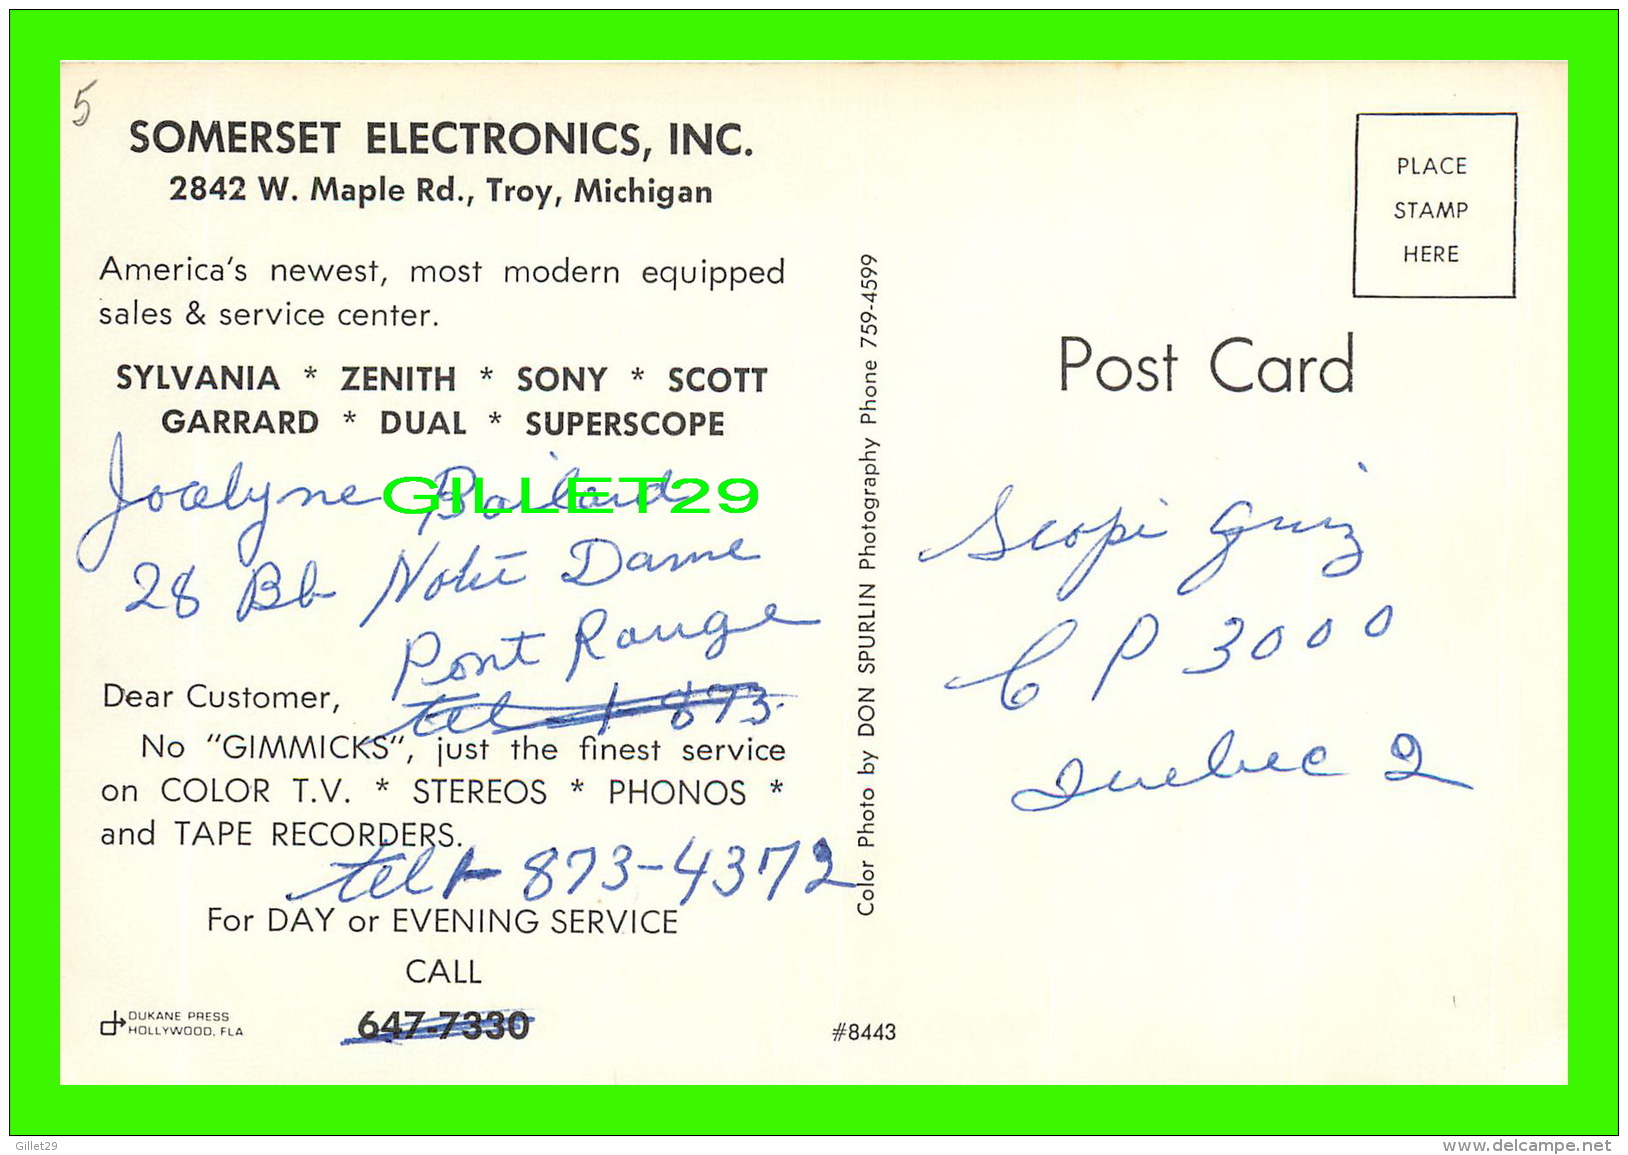 5
SOMERSET ELECTRONICS, INC.
2842 W. Maple Rd., Troy, Michigan
America's newest, most modern equipped
sales & service center.
SYLVANIA * ZENITH * SONY * SCOTT
GARRARD * DUAL * SUPERSCOPE
Jocelyne
GILLET29
28 Bb Notre Dame
Pont Rouge
Dear Customer,
tel 1 873-
No "GIMMICKS", just the finest service
on COLOR T.V. * STEREOS * PHONOS *
and TAPE RECORDERS.
tel 1- 873-4372
For DAY or EVENING SERVICE
CALL
647-7330
DUKANE PRESS
HOLLYWOOD, FLA
#8443
Color Photo by DON SPURLIN Photography Phone 759-4599
PLACE
STAMP
HERE
Post Card
Scopi Quiz
C P 3000
Quebec 2
Gillet29
www.delcampe.net